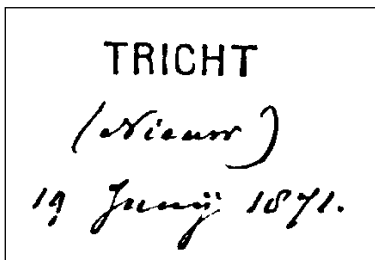 TRICHT
(Nieuw)
19 Junij 1871.